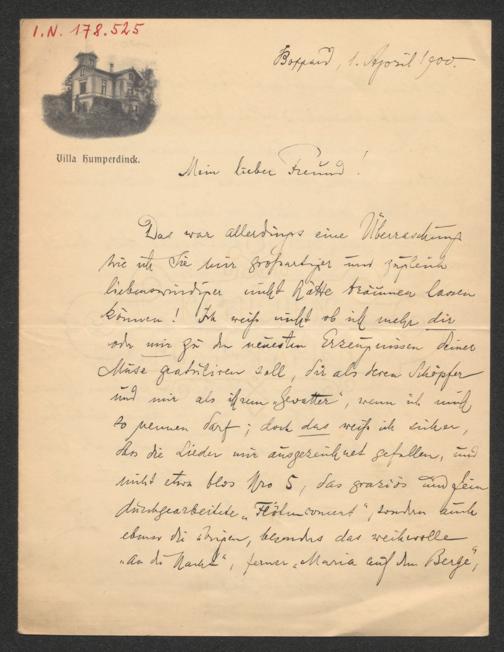 I.N. 178.525
Boppard, 1. April 1900.
Villa Humperdinck.
Mein lieber Freund!
Das war allerdings eine Überraschung
wie ich sie mir großartiger und zugleich
liebenswürdiger nicht hätte träumen lassen
können! Ich weiß nicht ob ich mehr dir
oder mir zu den neuesten Erzeugnissen deiner
Muse gratuliren soll, dir als deren Schöpfer
und mir als ihrem „Gevatter", wenn ich mich
so nennen darf; doch das weiß ich sicher,
das die Lieder mir ausgezeichnet gefallen, und
nicht etwa blos Nro 5, das graziös und fein
durchgearbeitete „Flötenconcert", sondern auch
ebenso die übrigen, besonders das weihevolle
„An die Nacht", ferner „Maria auf dem Berge",